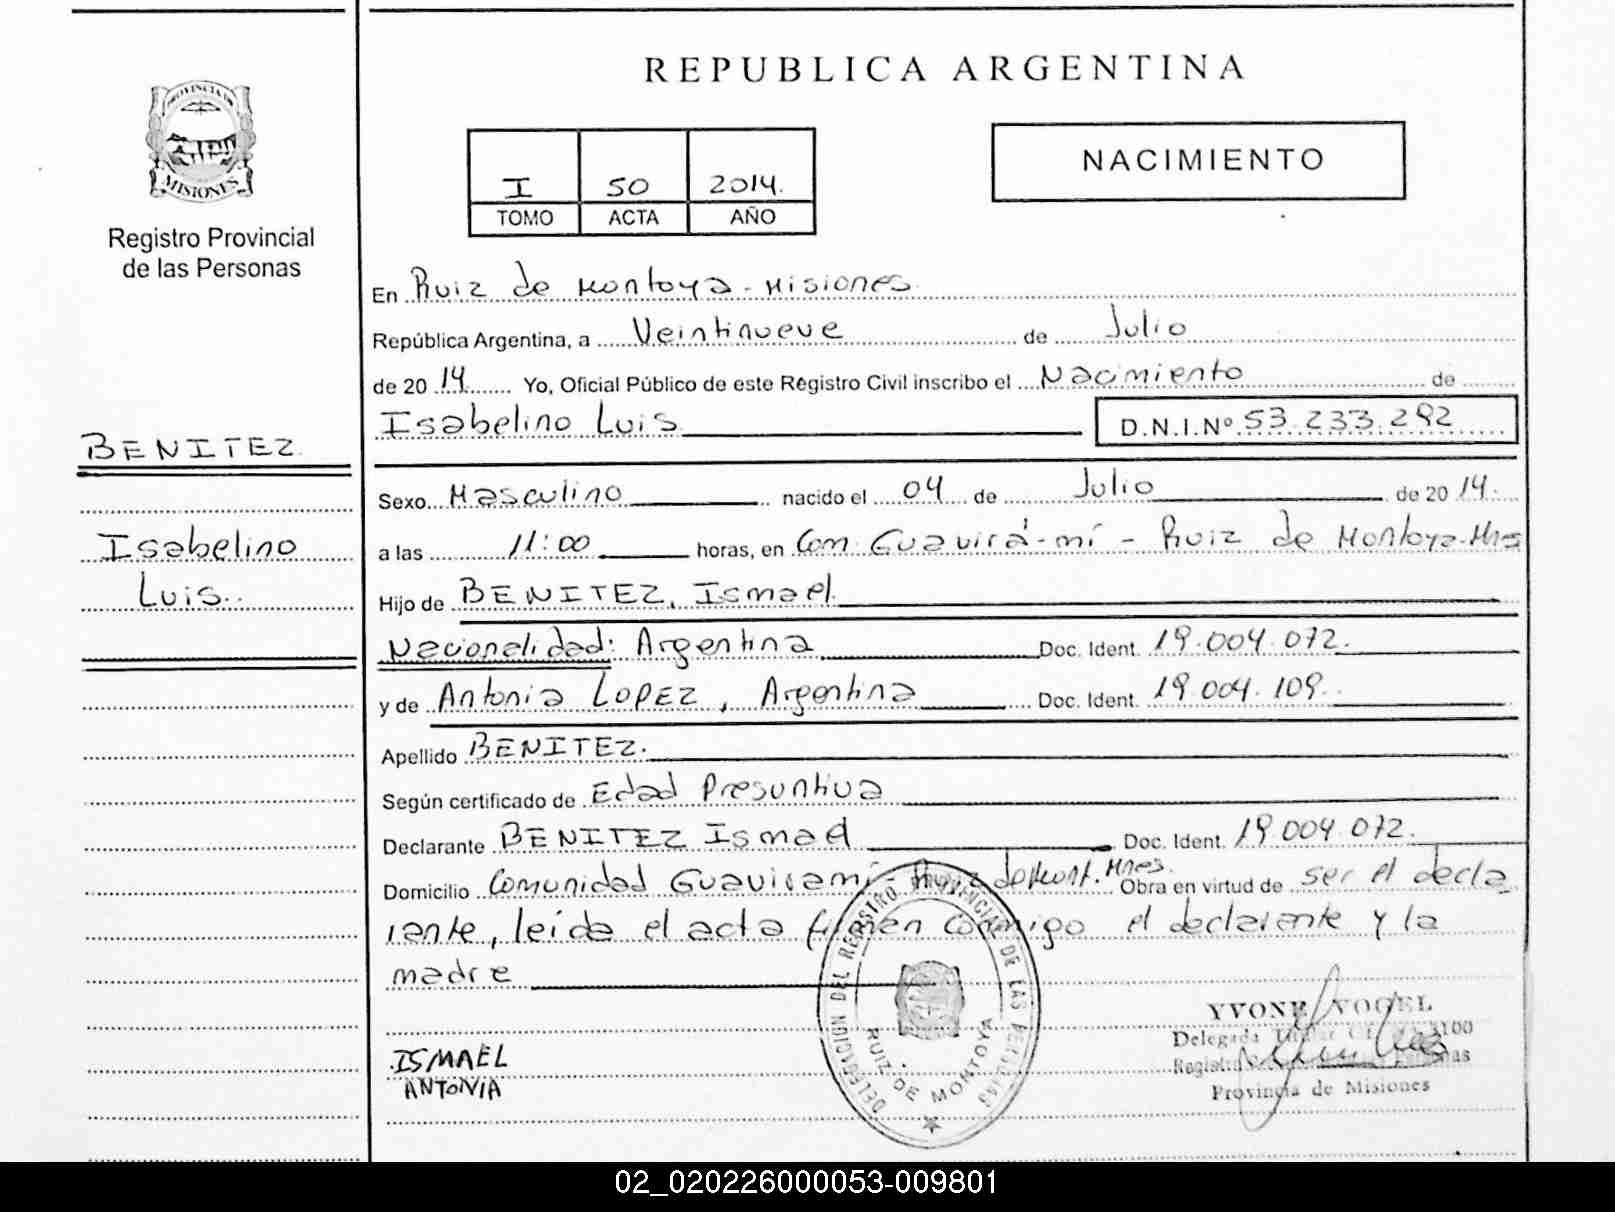 REPUBLICA ARGENTINA
PROVINCIA DE
MISIONES
Registro Provincial
de las Personas
I 50 2014.
TOMO ACTA AÑO
NACIMIENTO
En Ruiz de Montoya - Misiones
República Argentina, a Veintinueve de Julio
de 20 14 Yo, Oficial Público de este Registro Civil inscribo el Nacimiento de
Isabelino Luis D.N.I.Nº 53.233.292
BENITEZ
Isabelino
Luis.
Sexo Masculino nacido el 04 de Julio de 20 14.
a las 11:00 horas, en Com. Guavirá-mí - Ruiz de Montoya-Mnes
Hijo de BENITEZ, Ismael.
Nacionalidad: Argentina Doc. Ident. 19.004.072.
y de Antonia LOPEZ, Argentina Doc. Ident. 19.004.109.
Apellido BENITEZ.
Según certificado de Edad Presuntiva
Declarante BENITEZ Ismael Doc. Ident. 19.004.072.
Domicilio Comunidad Guaviramí - Ruiz de Mont. Mnes. Obra en virtud de ser el decla
rante, leída el acta firman conmigo el declarante y la
madre
ISMAEL
ANTONIA
DELEGACION DEL REGISTRO PROVINCIAL DE LAS PERSONAS
RUIZ DE MONTOYA
YVONE VOGEL
Delegada Titular
Provincia de Misiones
02_020226000053-009801